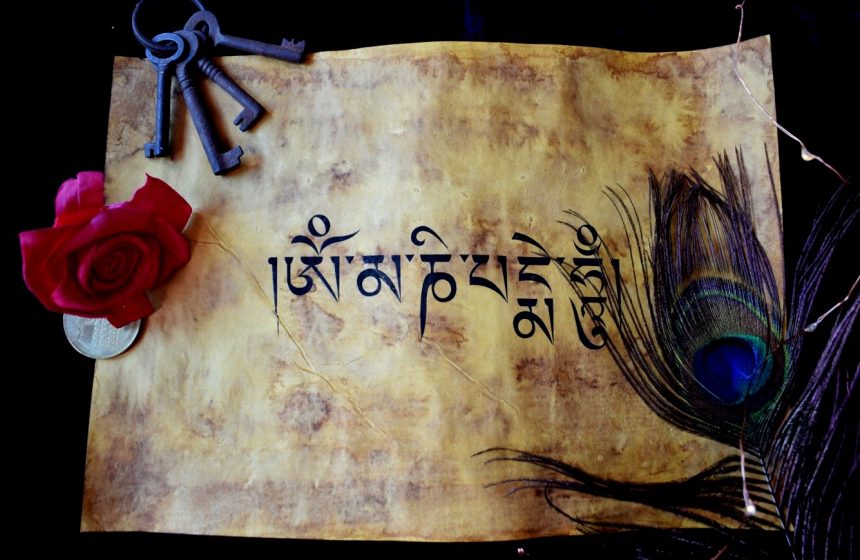 །ༀ་མ་ཎི་པ་དྨེ་ཧཱུྃ།